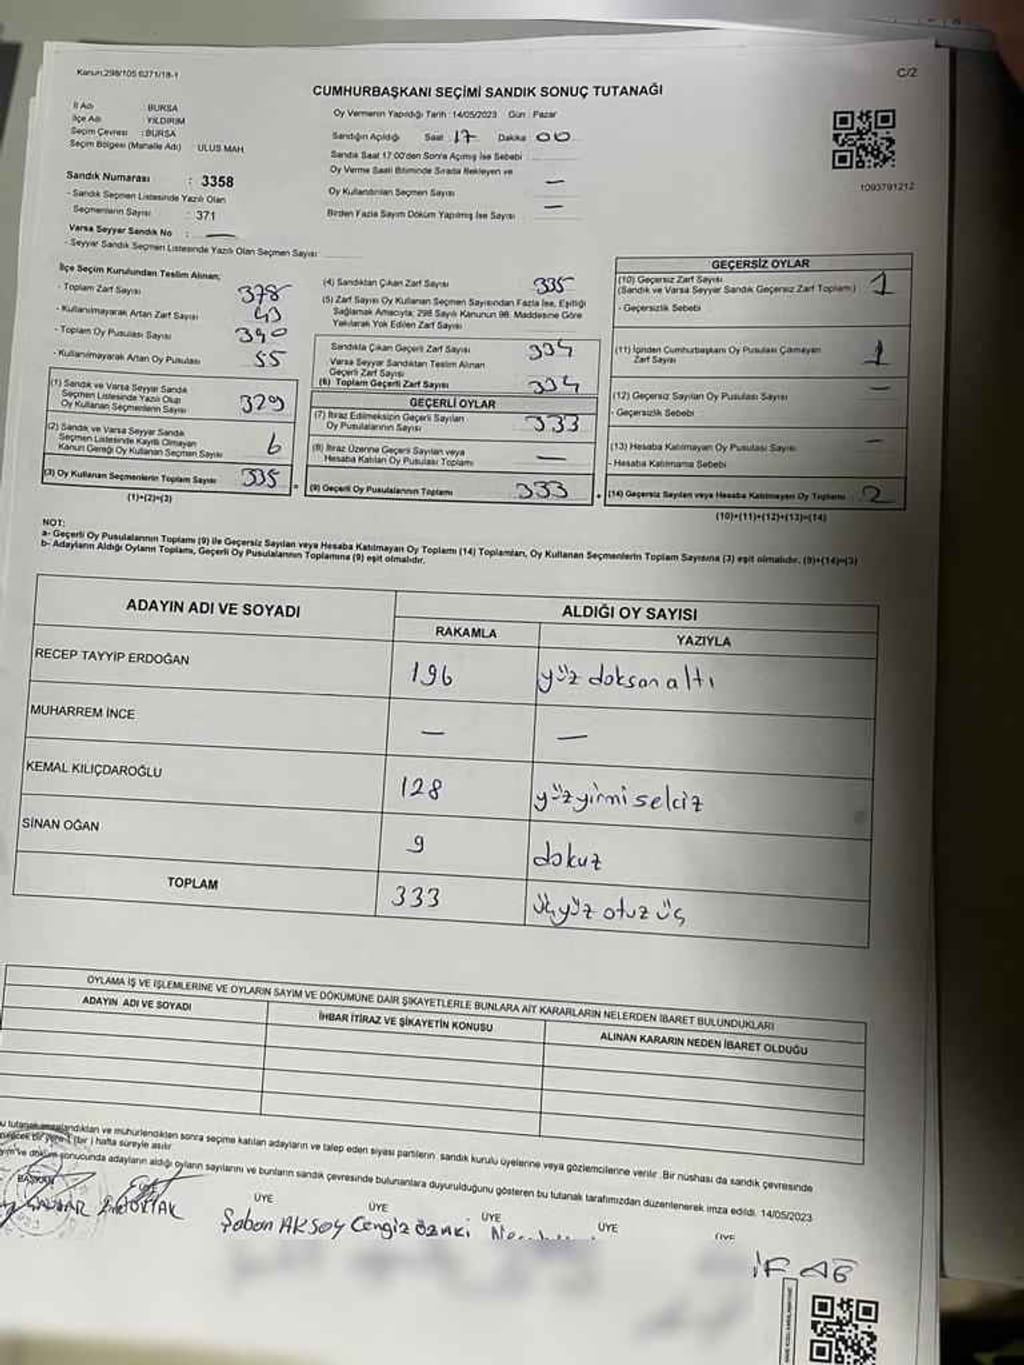 Kanun:298/105 6271/18-1
C/2
CUMHURBAŞKANI SEÇİMİ SANDIK SONUÇ TUTANAĞI
İl Adı : BURSA
İlçe Adı : YILDIRIM
Seçim Çevresi : BURSA
Seçim Bölgesi (Mahalle Adı) ULUS MAH.
Sandık Numarası : 3358
- Sandık Seçmen Listesinde Yazılı Olan
Seçmenlerin Sayısı : 371
Varsa Seyyar Sandık No : —
- Seyyar Sandık Seçmen Listesinde Yazılı Olan Seçmen Sayısı:
Oy Vermenin Yapıldığı Tarih :14/05/2023 Gün : Pazar
Sandığın Açıldığı Saat 17 Dakika 00
Sandık Saat 17:00'den Sonra Açılmış İse Sebebi
Oy Verme Saati Bitiminde Sırada Bekleyen ve
Oy Kullandırılan Seçmen Sayısı —
Birden Fazla Sayım Döküm Yapılmış İse Sayısı —
1093791212
İlçe Seçim Kurulundan Teslim Alınan;
- Toplam Zarf Sayısı 378
- Kullanılmayarak Artan Zarf Sayısı 43
- Toplam Oy Pusulası Sayısı 390
- Kullanılmayarak Artan Oy Pusulası 55
(1) Sandık ve Varsa Seyyar Sandık
Seçmen Listesinde Yazılı Olup
Oy Kullanan Seçmenlerin Sayısı 329
(2) Sandık ve Varsa Seyyar Sandık
Seçmen Listesinde Kayıtlı Olmayan
Kanun Gereği Oy Kullanan Seçmen Sayısı 6
(3) Oy Kullanan Seçmenlerin Toplam Sayısı 335
(1)+(2)=(2)
(4) Sandıktan Çıkan Zarf Sayısı 335
(5) Zarf Sayısı Oy Kullanan Seçmen Sayısından Fazla İse, Eşitliği
Sağlamak Amacıyla; 298 Sayılı Kanunun 98. Maddesine Göre
Yakılarak Yok Edilen Zarf Sayısı
Sandıkta Çıkan Geçerli Zarf Sayısı 334
Varsa Seyyar Sandıktan Teslim Alınan
Geçerli Zarf Sayısı
(6) Toplam Geçerli Zarf Sayısı 334
GEÇERLİ OYLAR
(7) İtiraz Edilmeksizin Geçerli Sayılan
Oy Pusulalarının Sayısı 333
(8) İtiraz Üzerine Geçerli Sayılan veya
Hesaba Katılan Oy Pusulası Toplamı —
(9) Geçerli Oy Pusulalarının Toplamı 333
GEÇERSİZ OYLAR
(10) Geçersiz Zarf Sayısı
(Sandık ve Varsa Seyyar Sandık Geçersiz Zarf Toplamı) 1
- Geçersizlik Sebebi
(11) İçinden Cumhurbaşkanı Oy Pusulası Çıkmayan
Zarf Sayısı 1
(12) Geçersiz Sayılan Oy Pusulası Sayısı —
- Geçersizlik Sebebi
(13) Hesaba Katılmayan Oy Pusulası Sayısı —
- Hesaba Katılmama Sebebi
(14) Geçersiz Sayılan veya Hesaba Katılmayan Oy Toplamı : 2
(10)+(11)+(12)+(13)=(14)
NOT:
a- Geçerli Oy Pusulalarının Toplamı (9) ile Geçersiz Sayılan veya Hesaba Katılmayan Oy Toplamı (14) Toplamları, Oy Kullanan Seçmenlerin Toplam Sayısına (3) eşit olmalıdır. (9)+(14)=(3)
b- Adayların Aldığı Oyların Toplamı, Geçerli Oy Pusulalarının Toplamına (9) eşit olmalıdır.
ADAYIN ADI VE SOYADI ALDIĞI OY SAYISI
RAKAMLA YAZIYLA
RECEP TAYYİP ERDOĞAN 196 yüz doksan altı
MUHARREM İNCE — —
KEMAL KILIÇDAROĞLU 128 yüz yirmi sekiz
SİNAN OĞAN 9 dokuz
TOPLAM 333 üçyüz otuz üç
OYLAMA İŞ VE İŞLEMLERİNE VE OYLARIN SAYIM VE DÖKÜMÜNE DAİR ŞİKAYETLERLE BUNLARA AİT KARARLARIN NELERDEN İBARET BULUNDUKLARI
ADAYIN ADI VE SOYADI İHBAR İTİRAZ VE ŞİKAYETİN KONUSU ALINAN KARARIN NEDEN İBARET OLDUĞU
u tutanak imzalandıktan ve mühürlendikten sonra seçime katılan adayların ve talep eden siyasi partilerin, sandık kurulu üyelerine veya gözlemcilerine verilir. Bir nüshası da sandık çevresinde
bir yere 1 (bir) hafta süreyle asılır.
ve döküm sonucunda adayların aldığı oyların sayılarını ve bunların sandık çevresinde bulunanlara duyurulduğunu gösteren bu tutanak tarafımızdan düzenlenerek imza edildi. 14/05/2023
BAŞKAN ÜYE ÜYE ÜYE ÜYE ÜYE ÜYE
Şaban AKSOY Cengiz